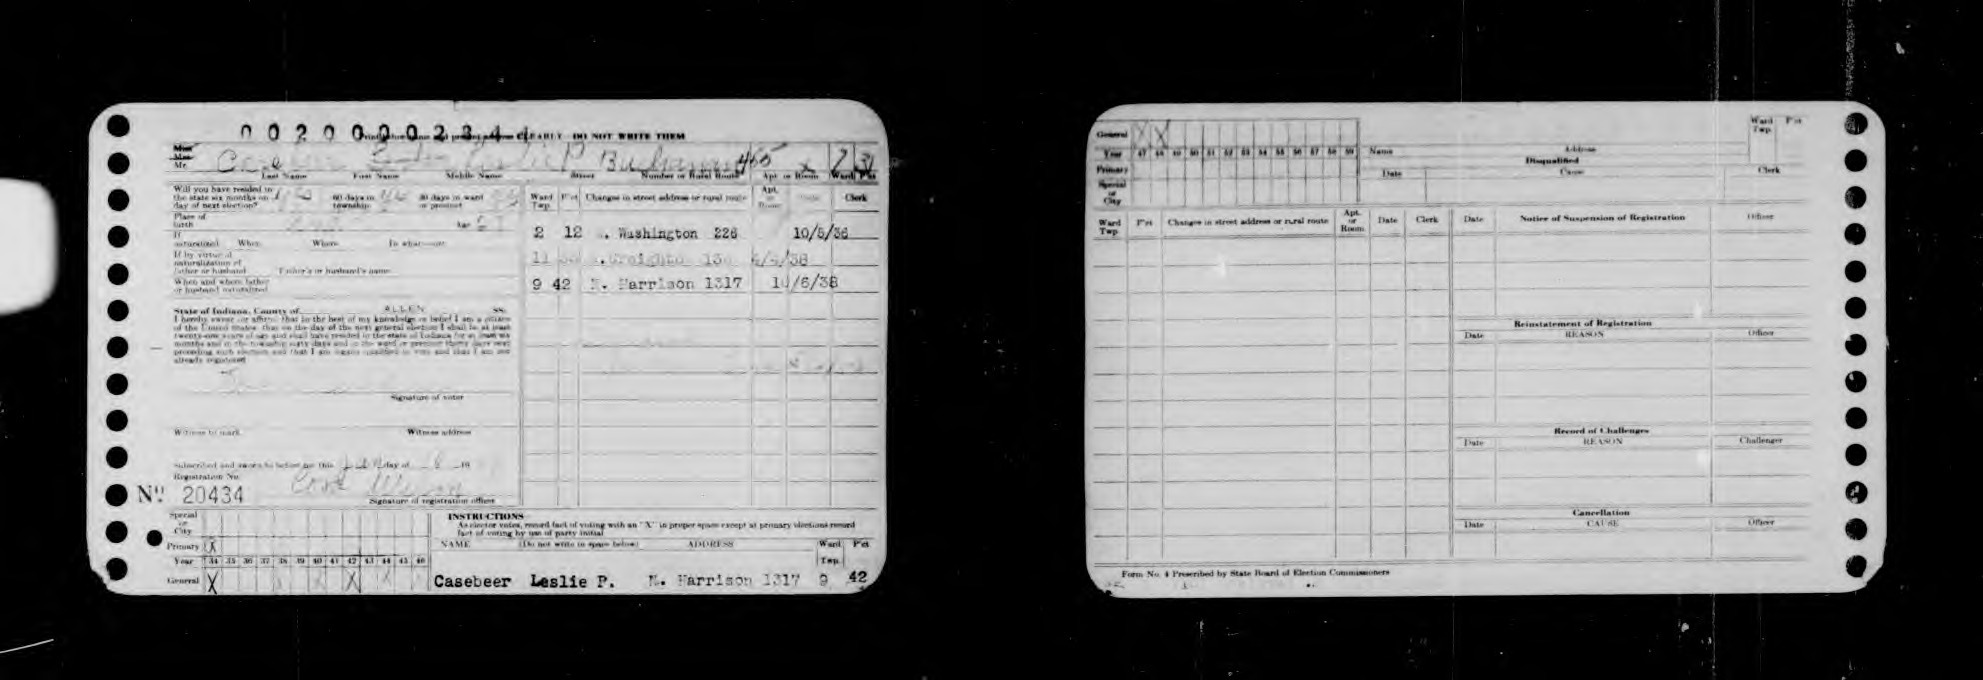 0020000234
CLEARLY—DO NOT WRITE THEM
Miss
Mrs.
Mr.
Buchanan 465 x 7 31
Last Name First Name Middle Name Street Number or Rural Route Apt. or Room Ward Pct
Will you have resided in
the state six months on 60 days in 30 days in ward
day of next election? township or precinct
Place of
birth Age
If
naturalized When Where In what court
If by virtue of
naturalization of
father or husband Father's or husband's name
When and where father
or husband naturalized
Ward Twp. P'ct Changes in street address or rural route Apt. or Room Clerk
2 12 . Washington 226 10/5/36
11 .Creighton 130 4/4/38
9 42 N. Harrison 1317 10/6/38
State of Indiana, County of ALLEN SS:
I hereby swear (or affirm) that to the best of my knowledge or belief I am a citizen
of the United States, that on the day of the next general election I shall be at least
twenty-one years of age and shall have resided in the state of Indiana for at least six
months and in the township sixty days and in the ward or precinct thirty days next
preceding such election and that I am legally qualified to vote and that I am not
already registered
Signature of voter
Witness to mark Witness address
Subscribed and sworn to before me this day of 19
Registration No.
No. 20434
Signature of registration officer
Special
or
City
Primary X
Year 34 35 36 37 38 39 40 41 42 43 44 45 46
General X X X X X
INSTRUCTIONS
As elector votes, record fact of voting with an "X" in proper space except at primary elections record
fact of voting by use of party initial
NAME (Do not write in space below) ADDRESS Ward Twp. P'ct
Casebeer Leslie P. N. Harrison 1317 9 42
General X X
Year 47 48 49 50 51 52 53 54 55 56 57 58 59
Primary
Special
or
City
Name Address Ward Twp. P'ct
Disqualified
Date Cause Clerk
Ward Twp. P'ct Changes in street address or rural route Apt. or Room Date Clerk
Date Notice of Suspension of Registration Officer
Reinstatement of Registration
Date REASON Officer
Record of Challenges
Date REASON Challenger
Cancellation
Date CAUSE Officer
Form No. 4 Prescribed by State Board of Election Commissioners